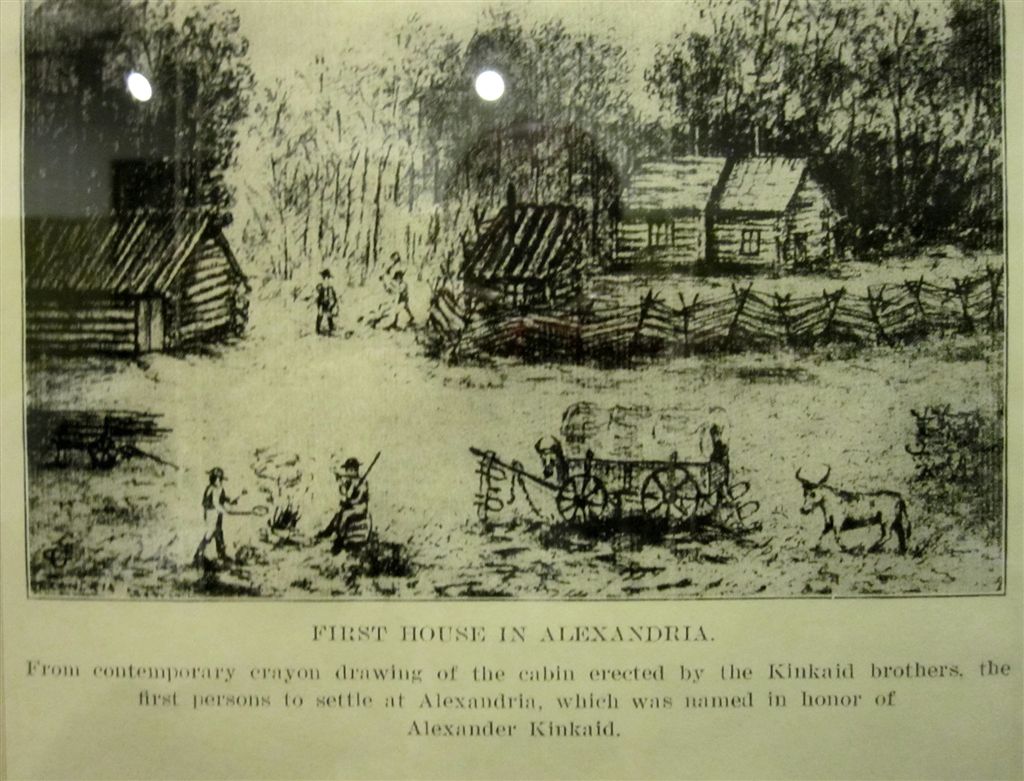 FIRST HOUSE IN ALEXANDRIA.
From contemporary crayon drawing of the cabin erected by the Kinkaid brothers, the
first persons to settle at Alexandria, which was named in honor of
Alexander Kinkaid.